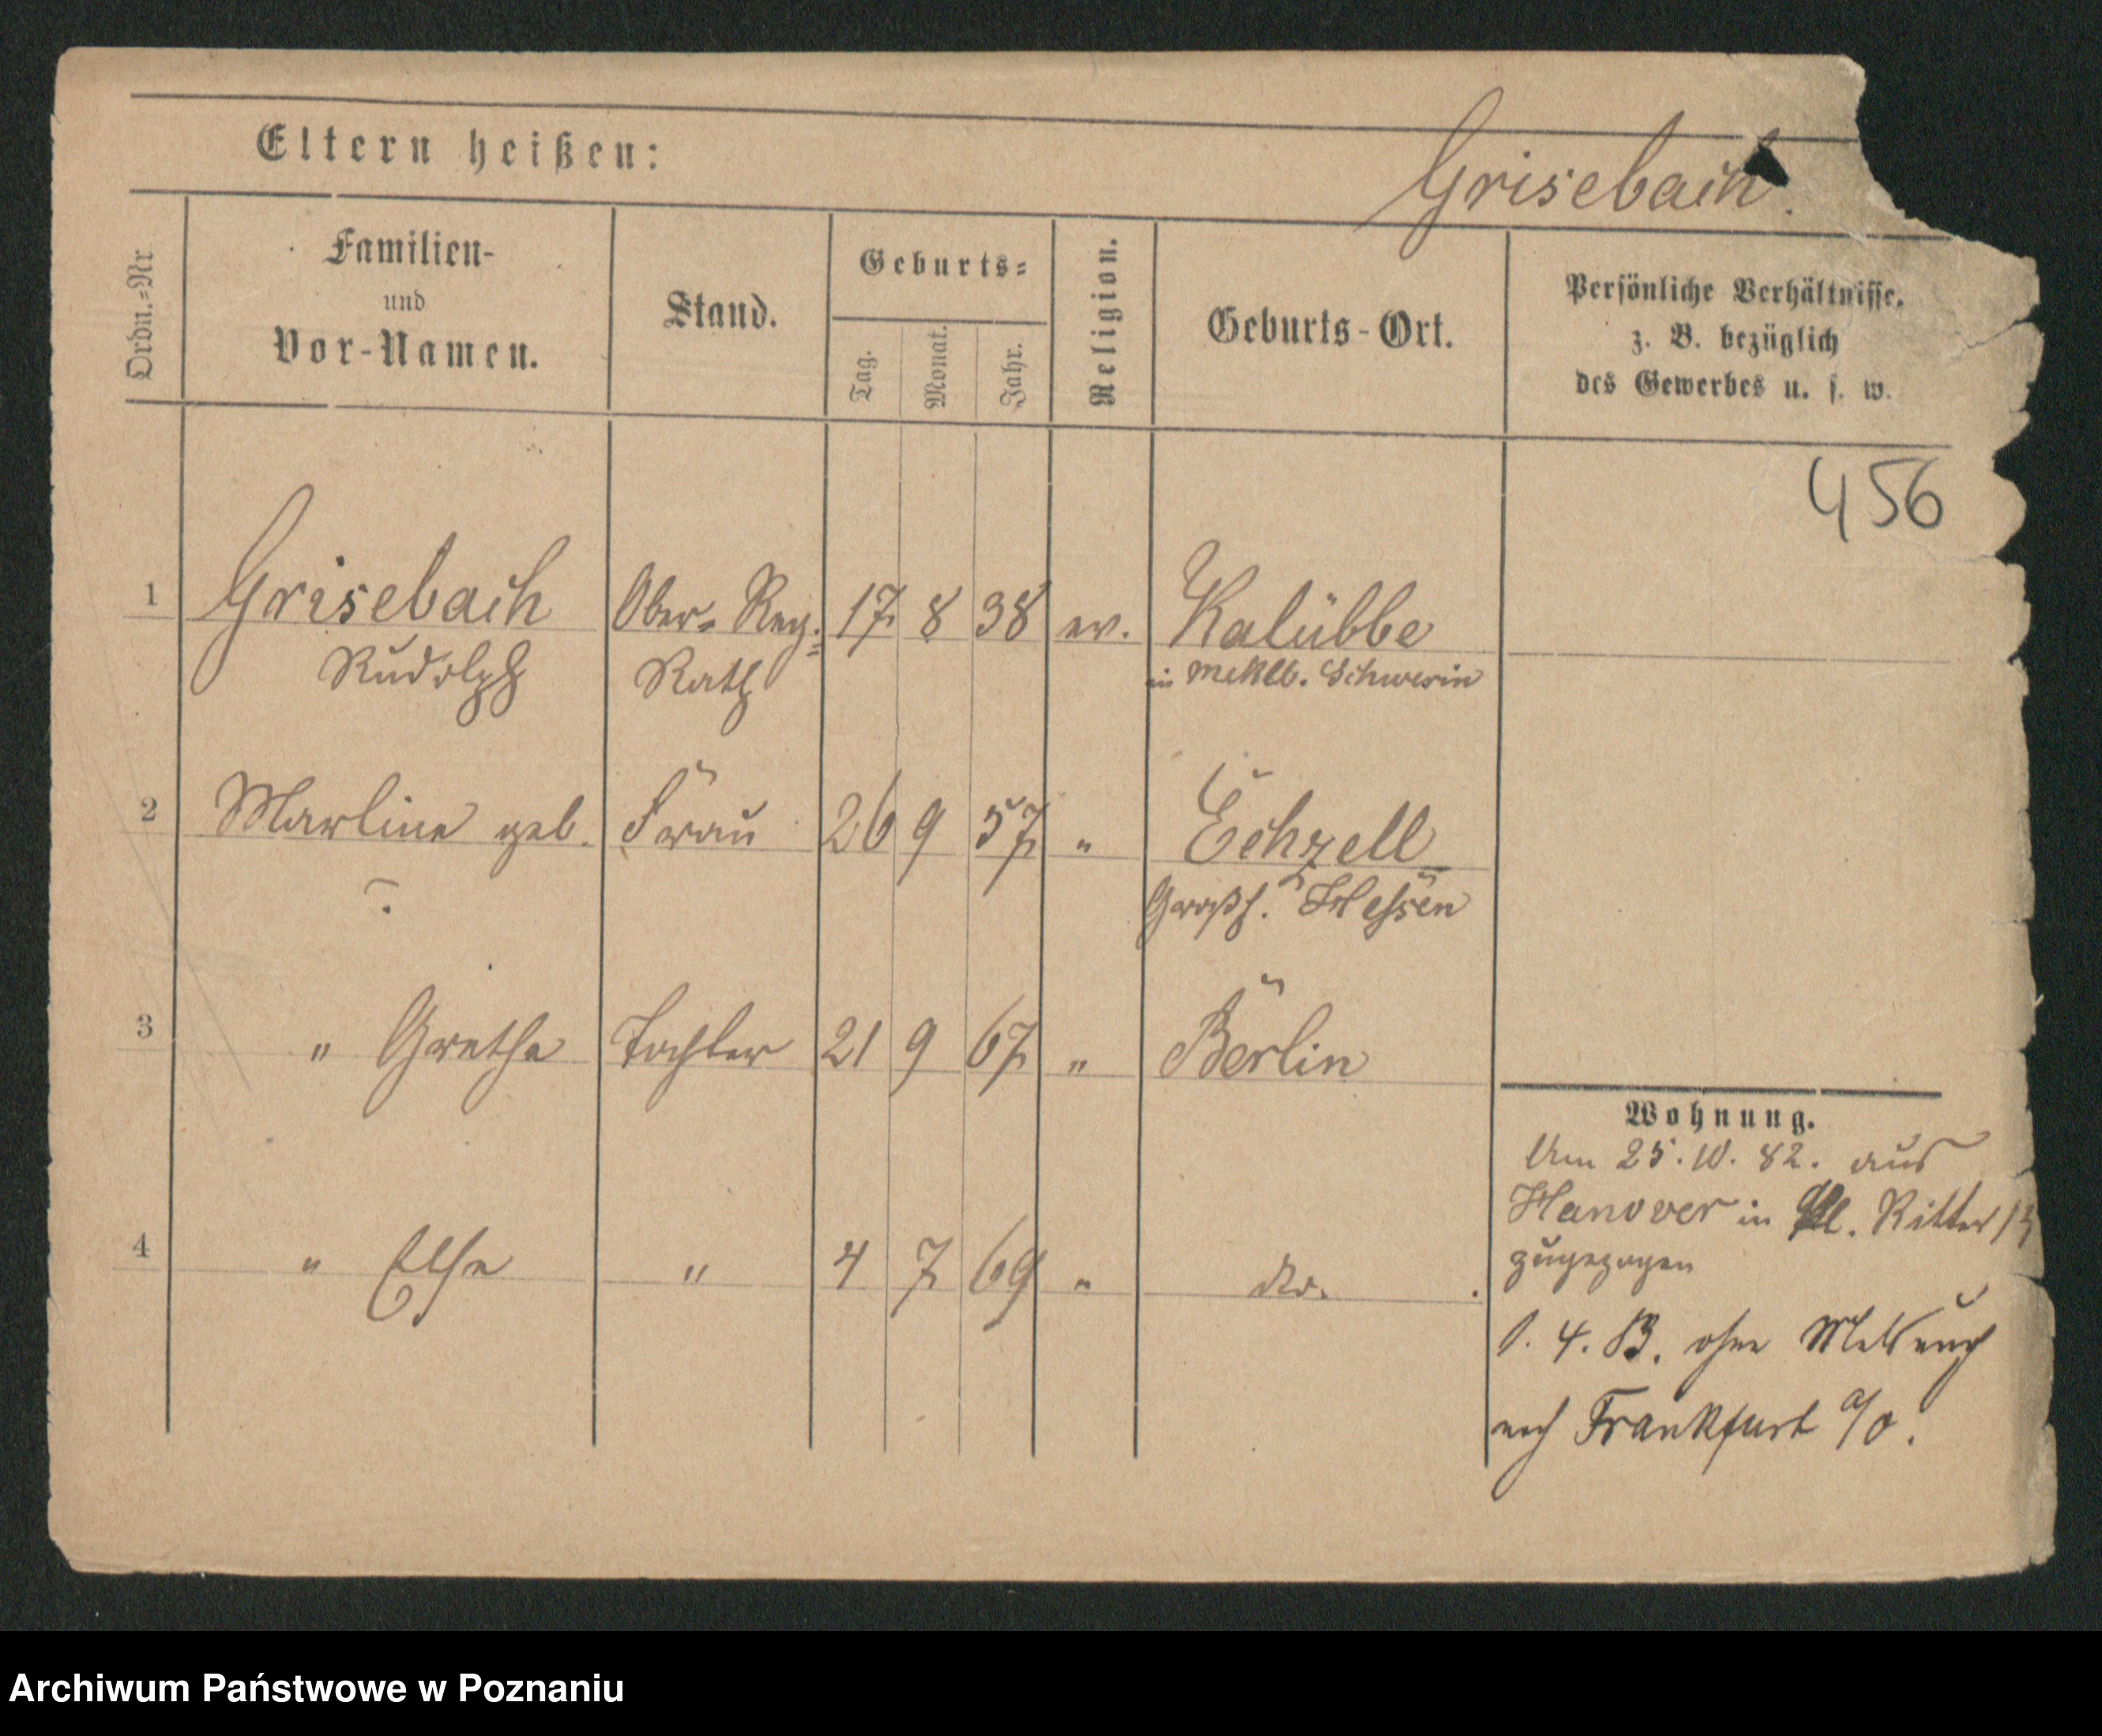 Eltern heißen:
Grisebach.
Ordn.=Nr
Familien-
und
Vor-Namen.
Stand.
Geburts=
Tag.
Monat.
Jahr.
Religion.
Geburts-Ort.
Persönliche Verhältnisse.
z. B. bezüglich
des Gewerbes u. s. w.
456
1 Grisebach Ober=Reg.= 17 8 38 ev. Kalübbe
Rudolph Rath in Meklb. Schwerin
2 Marline geb. Frau 26 9 37 " Echzell
? Großh. Hessen
3 " Grethe Tochter 21 9 67 " Berlin
4 " Else " 4 7 69 " do.
Wohnung.
Am 25. 10. 82. aus
Hanover in Kl. Ritter 13
zugezogen
1. 4. 83. ohne Meldung
nach Frankfurt a/O.
Archiwum Państwowe w Poznaniu